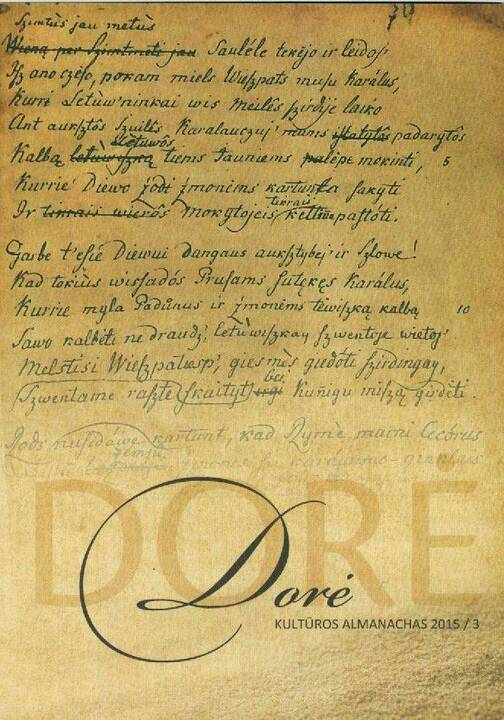 79
Szimtùs jau metùs
Wieną per Szimtmetį jau Saulélė tekėjo ir leidos
Isz ano czėso, pokam miels Wieszpats musu Karálus,
Kurrį Letùw'ninkai wis meilės szirdije laiko
Ant auksztôs Szuilês Karalauczuj' mums istatytą padarytôs
Letuwôs
Kalbą letùwiszką tiems Jauniems palėpe mokinti, 5
Kurrie Diewo żodį żmonėms kartunta sakyti
tikrais
Ir tikrais wierôs mokytojeis keltuwe pastóti.
Garbe t'esie Diewui dangaus auksztybėj' ir Szlowe!
Kad tokiùs wissadós Prusams sutękęs Karálus,
Kurrie myla Padúnus ir żmonėms tėwiszką kalbą 10
Sawo kalbėti ne draudż', letùwiszkay szwentoje wietoj'
Melstisi Wieszpatuasp', giesmės giedóti szirdingay,
bei
Szwentame raszte skaityt' irgi Kuñigu miszą girdėti.
Rods nusidáwe kartunt, kad Zyme macni
DORĖ
Dorė
KULTŪROS ALMANACHAS 2015 / 3